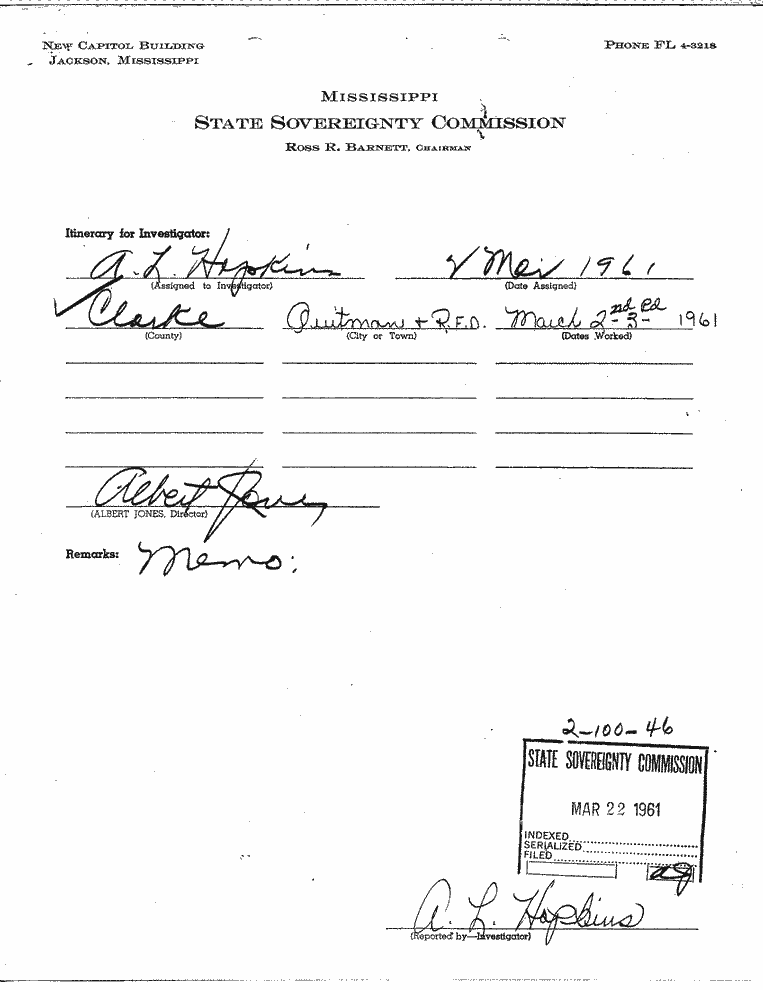 NEW CAPITOL BUILDING PHONE FL 4-3218
JACKSON, MISSISSIPPI
MISSISSIPPI
STATE SOVEREIGNTY COMMISSION
ROSS R. BARNETT, CHAIRMAN
Itinerary for Investigator:
A. L. Hopkins 1961
(Assigned to Investigator) (Date Assigned)
Clarke Quitman + R.F.D. March 2nd - 3rd - 1961
(County) (City or Town) (Dates Worked)
Albert Jones
(ALBERT JONES, Director)
Remarks: Memo:
2-100-46
STATE SOVEREIGNTY COMMISSION
MAR 22 1961
INDEXED
SERIALIZED
FILED
A. L. Hopkins
(Reported by—Investigator)